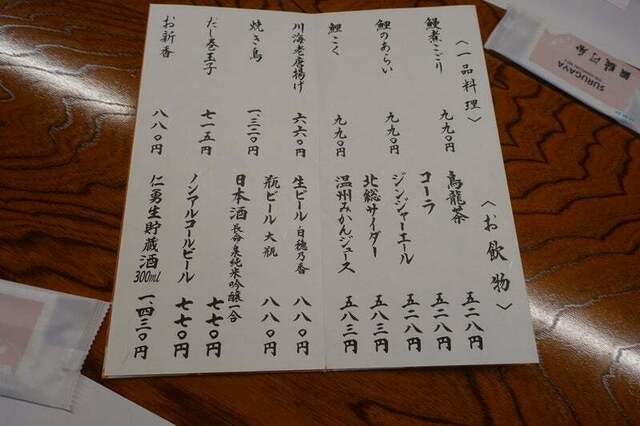 〈一品料理〉
鰻煮こごり 九九〇円
鯉のあらい 九九〇円
鯉こく 九九〇円
川海老唐揚げ 六六〇円
焼き鳥 一、三二〇円
だし巻玉子 七一五円
お新香 八八〇円
〈お飲物〉
烏龍茶 五二八円
コーラ 五二八円
ジンジャーエール 五二八円
北総サイダー 五八三円
温州みかんジュース 五八三円
生ビール 白穂乃香 八八〇円
瓶ビール 大瓶 八八〇円
日本酒 長命泉純米吟醸一合 七七〇円
ノンアルコールビール 七七〇円
仁勇生貯蔵酒 300ml 一、四三〇円
SURUGAYA